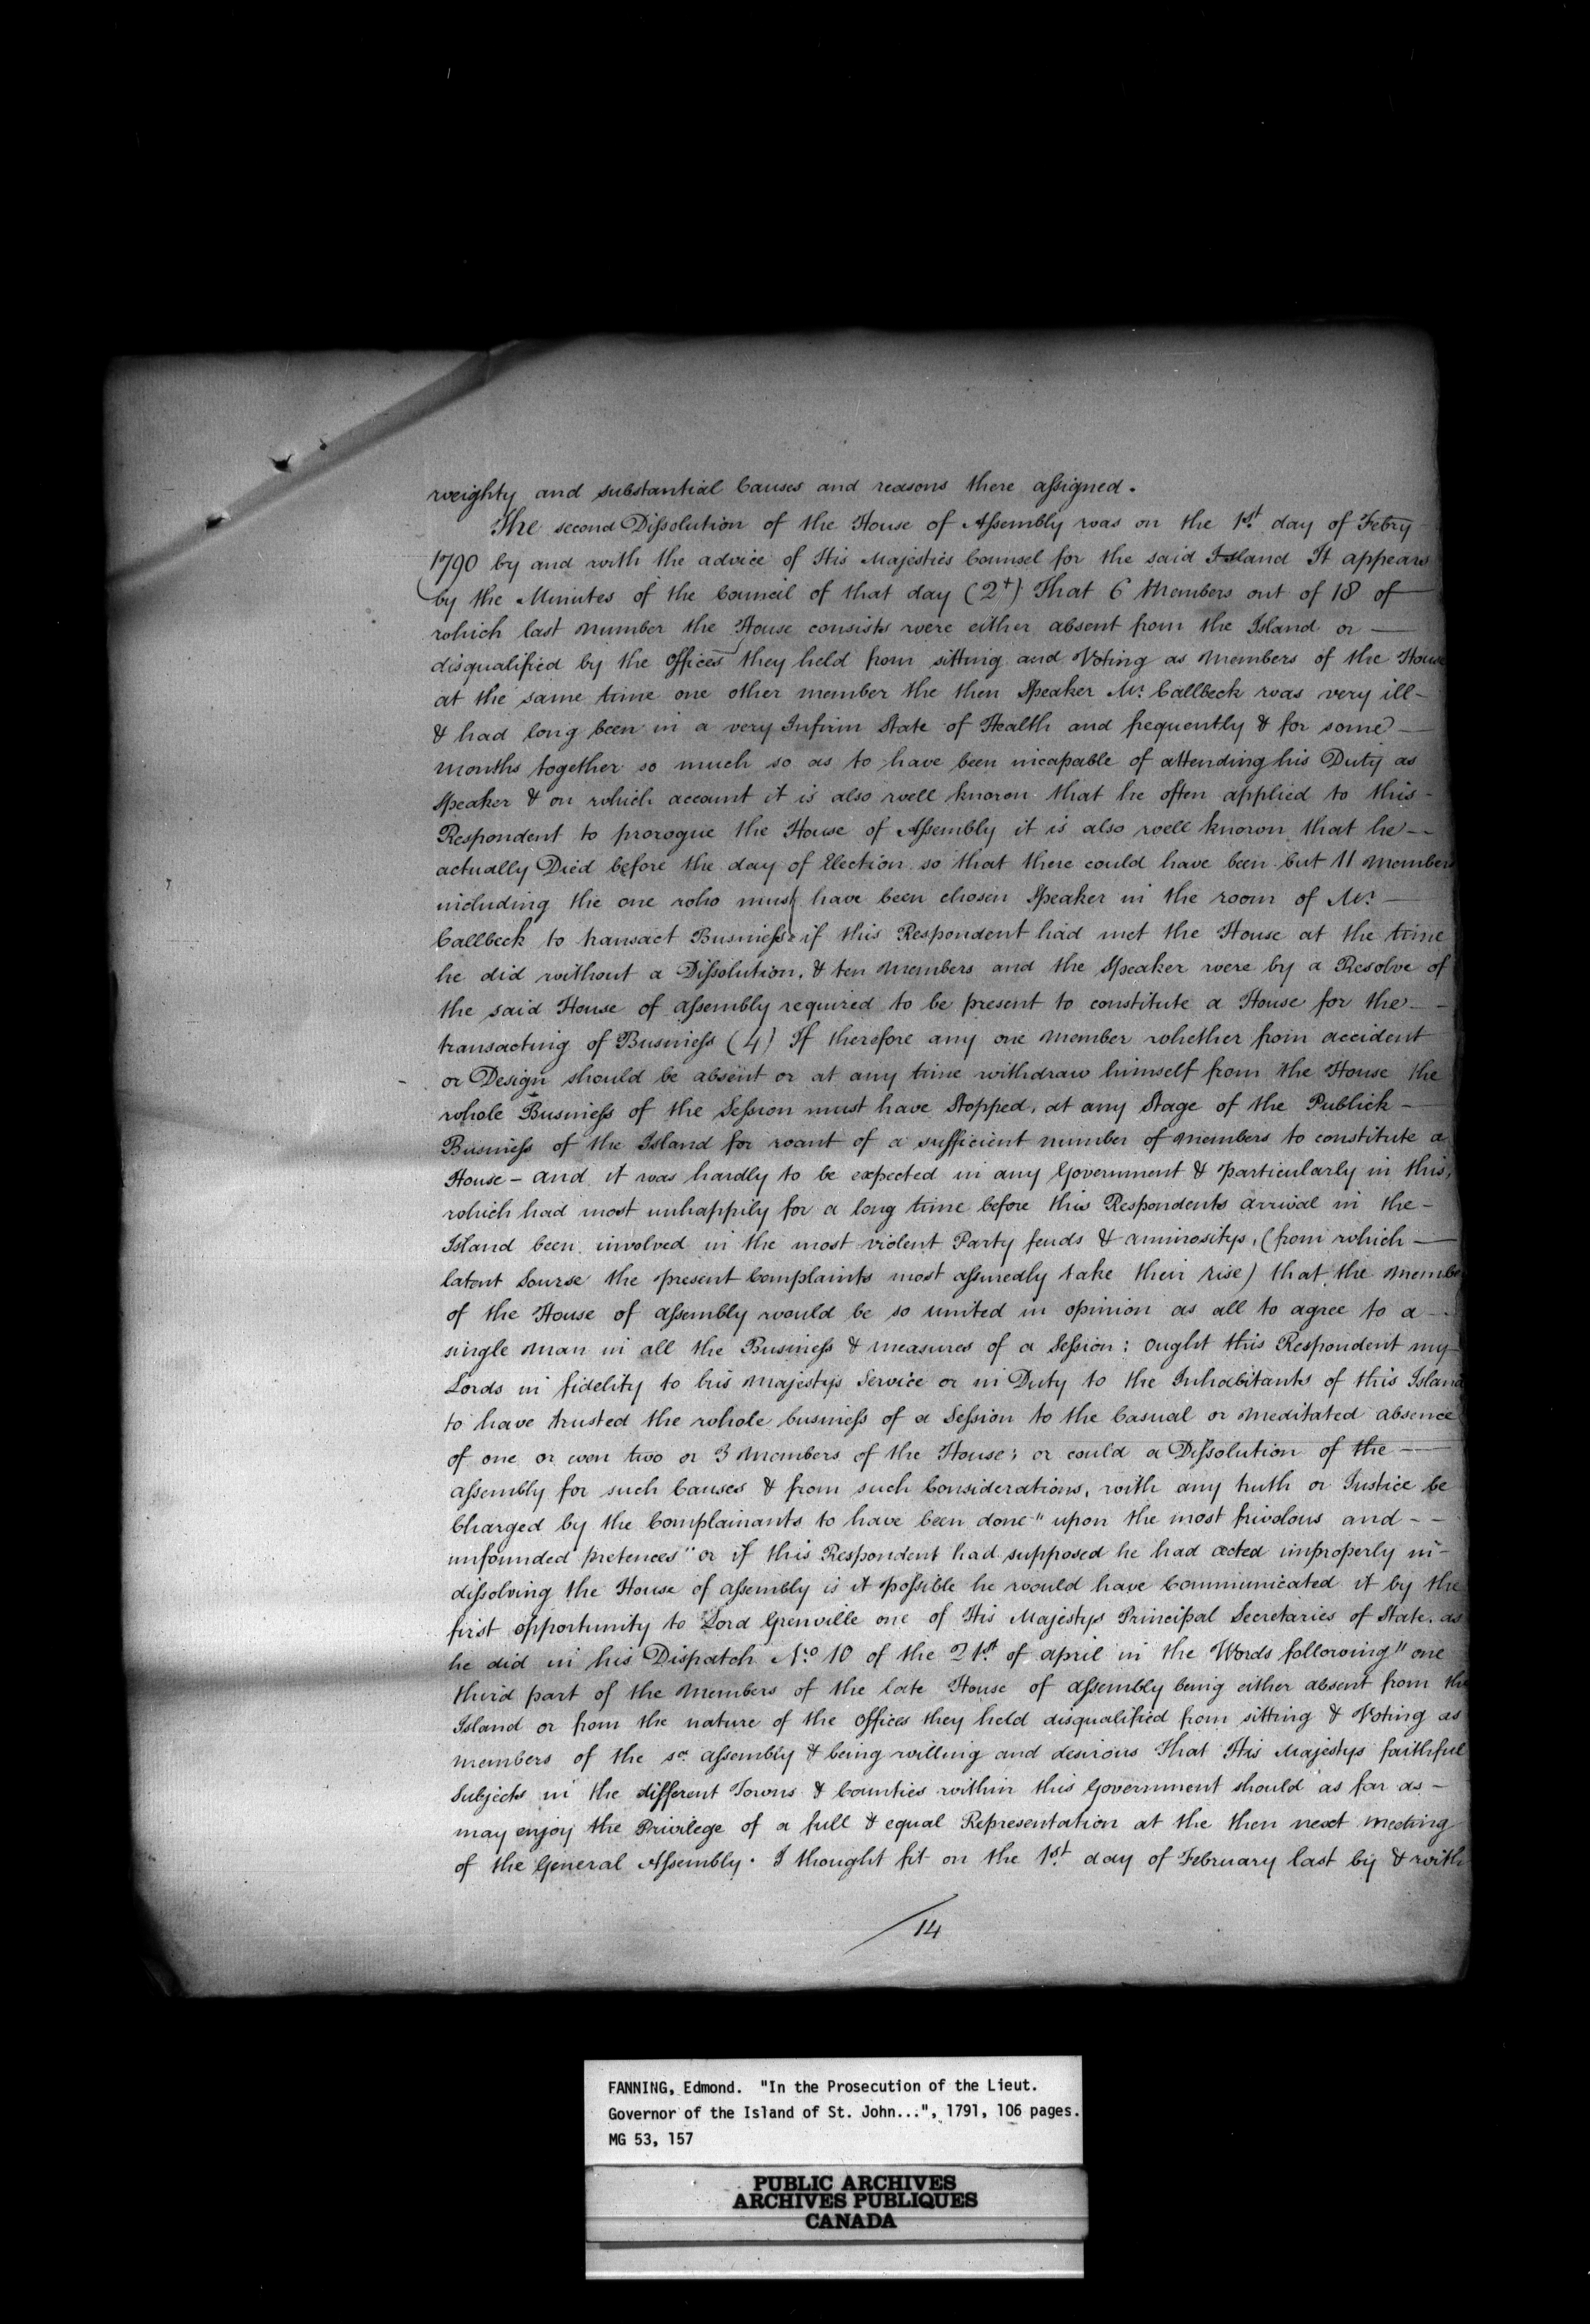 weighty and substantial Causes and reasons there assigned.
The second Dissolution of the House of Assembly was on the 1st day of Febry
1790 by and with the advice of His Majesties Counsel for the said Island It appears
by the Minutes of the Council of that day (2+) That 6 Members out of 18 of
which last number the House consists were either absent from the Island or —
disqualified by the offices they held from sitting and Voting as Members of the House
at the same time one other member the then Speaker Mr. Callbeck was very ill —
& had long been in a very Infirm State of Health and frequently & for some —
months together so much so as to have been incapable of attending his Duty as
Speaker & on which account it is also well known that he often applied to this —
Respondent to prorogue the House of Assembly it is also well known that he —
actually Died before the day of Election so that there could have been but 11 Members
including the one who must have been chosen Speaker in the room of Mr. —
Callbeck to transact Business if this Respondent had met the House at the time
he did without a Dissolution, & ten Members and the Speaker were by a Resolve of
the said House of assembly required to be present to constitute a House for the —
transacting of Business (4) If therefore any one Member whether from accident
or Design should be absent or at any time withdraw himself from the House the
whole Business of the Session must have Stopped, at any Stage of the Publick —
Business of the Island for want of a sufficient number of Members to constitute a
House — and it was hardly to be expected in any Government & particularly in this,
which had most unhappily for a long time before this Respondents arrival in the —
Island been involved in the most violent Party feuds & animositys, (from which —
latent Sourse the present Complaints most assuredly take their rise) that the Membe
of the House of assembly would be so united in opinion as all to agree to a —
single Man in all the Business & measures of a Session: ought this Respondent my
Lords in fidelity to his Majestys Service or in Duty to the Inhabitants of this Island
to have trusted the whole business of a Session to the Casual or meditated absence
of one or even two or 3 Members of the House; or could a Dissolution of the —
assembly for such Causes & from such Considerations, with any truth or Justice be
Charged by the Complainants to have been done "upon the most frivolous and —
unfounded pretences" or if this Respondent had supposed he had acted improperly in —
dissolving the House of assembly is it possible he would have Communicated it by the
first opportunity to Lord Grenville one of His Majestys Principal Secretaries of State. as
he did in his Dispatch No. 10 of the 21st of april in the Words following "one
third part of the Members of the late House of assembly being either absent from the
Island or from the nature of the offices they held disqualified from sitting & Voting as
members of the sd. assembly & being willing and desirous That His Majestys faithful
Subjects in the different Towns & Counties within this Government should as far as —
may enjoy the Privilege of a full & equal Representation at the then next Meeting
of the General Assembly. I thought fit on the 1st day of February last by & with
/14
FANNING, Edmond. "In the Prosecution of the Lieut.
Governor of the Island of St. John...", 1791, 106 pages.
MG 53, 157
PUBLIC ARCHIVES
ARCHIVES PUBLIQUES
CANADA